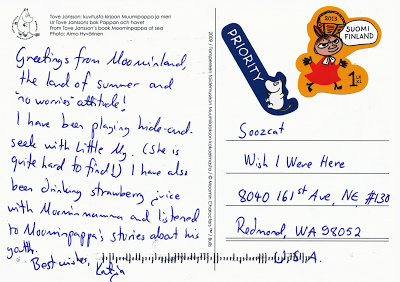 Tove Jansson: kuvitusta kirjaan Muumipappa ja meri
Ur Tove Janssons bok Pappan och havet
From Tove Jansson's book Moominpappa at sea
Photo: Aimo Hyvärinen
Greetings from Moominland,
the land of summer and
"no worries" attitude!
I have been playing hide-and-
seek with Little My. (She is
quite hard to find!) I have also
been drinking strawberry juice
with Moominmamma and listened
to Moominpappa's stories about his
youth.
Best wishes, Katja
PRIORITY
2013
SUOMI
FINLAND
1
LK
KL
Soozcat
Wish I Were Here
8040 161st Ave, NE #130
Redmond, WA 98052
U.S.A.